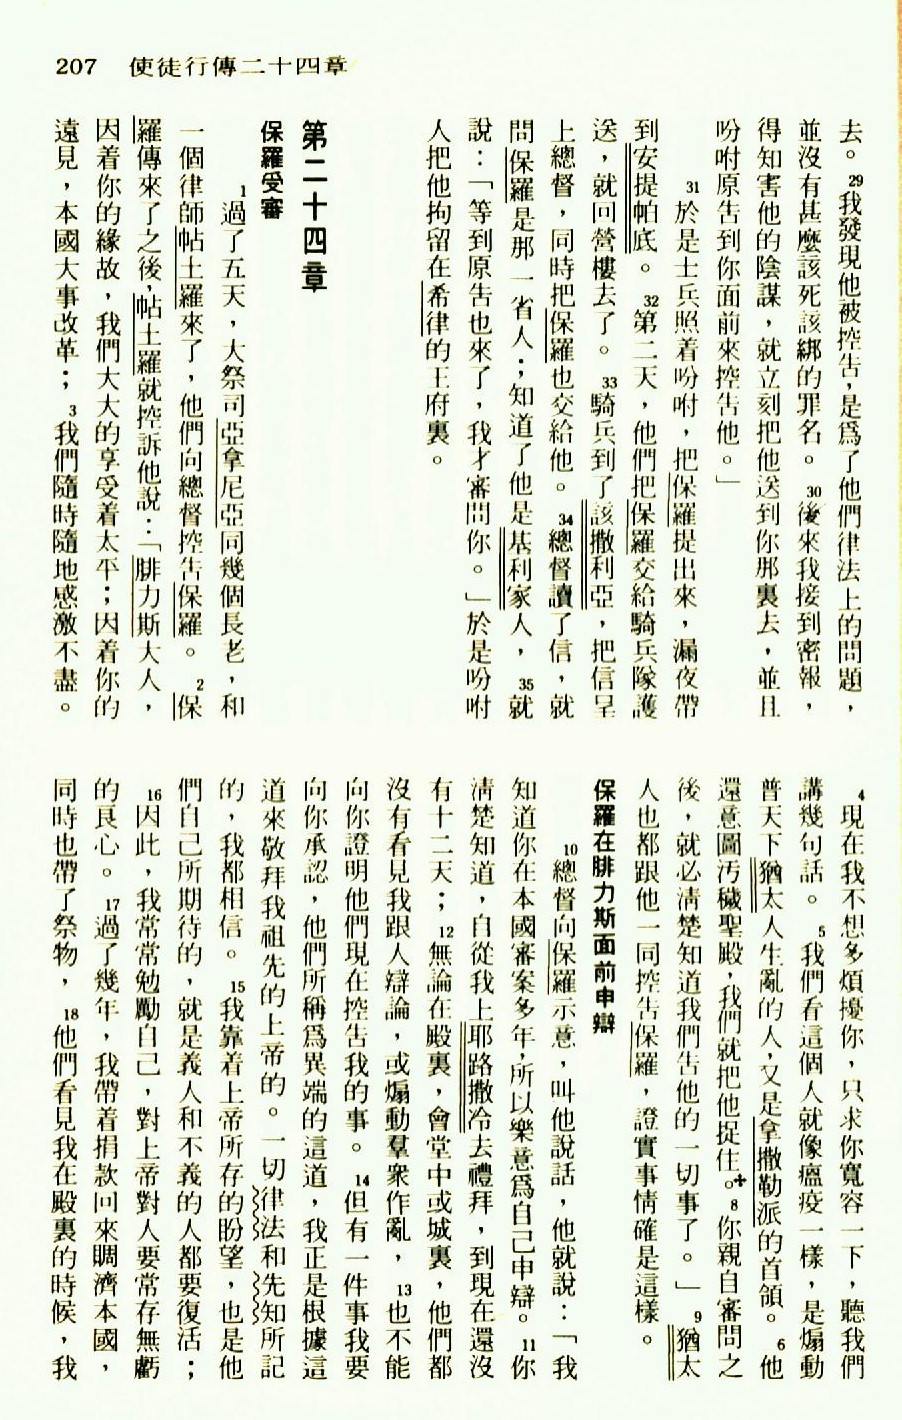 207 使徒行傳二十四章
去。29我發現他被控告，是爲了他們律法上的問題，
並沒有甚麼該死該綁的罪名。30後來我接到密報，
得知害他的陰謀，就立刻把他送到你那裏去，並且
吩咐原告到你面前來控告他。」
31於是士兵照着吩咐，把保羅提出來，漏夜帶
到安提帕底。32第二天，他們把保羅交給騎兵隊護
送，就回營樓去了。33騎兵到了該撒利亞，把信呈
上總督，同時把保羅也交給他。34總督讀了信，就
問保羅是那一省人；知道了他是基利家人，35就
說：「等到原告也來了，我才審問你。」於是吩咐
人把他拘留在希律的王府裏。
第二十四章
保羅受審
1過了五天，大祭司亞拿尼亞同幾個長老，和
一個律師帖土羅來了，他們向總督控告保羅。2保
羅傳來了之後，帖土羅就控訴他說：「腓力斯大人，
因着你的緣故，我們大大的享受着太平；因着你的
遠見，本國大事改革；3我們隨時隨地感激不盡。
4現在我不想多煩擾你，只求你寬容一下，聽我們
講幾句話。5我們看這個人就像瘟疫一樣，是煽動
普天下猶太人生亂的人，又是拿撒勒派的首領。6他
還意圖汚穢聖殿，我們就把他捉住。✢8你親自審問之
後，就必淸楚知道我們告他的一切事了。」9猶太
人也都跟他一同控告保羅，證實事情確是這樣。
保羅在腓力斯面前申辯
10總督向保羅示意，叫他說話，他就說：「我
知道你在本國審案多年，所以樂意爲自己申辯。11你
淸楚知道，自從我上耶路撒冷去禮拜，到現在還沒
有十二天；12無論在殿裏，會堂中或城裏，他們都
沒有看見我跟人辯論，或煽動羣衆作亂，13也不能
向你證明他們現在控告我的事。14但有一件事我要
向你承認，他們所稱爲異端的這道，我正是根據這
道來敬拜我祖先的上帝的。一切律法和先知所記
的，我都相信。15我靠着上帝所存的盼望，也是他
們自己所期待的，就是義人和不義的人都要復活；
16因此，我常常勉勵自己，對上帝對人要常存無虧
的良心。17過了幾年，我帶着捐款回來賙濟本國，
同時也帶了祭物，18他們看見我在殿裏的時候，我